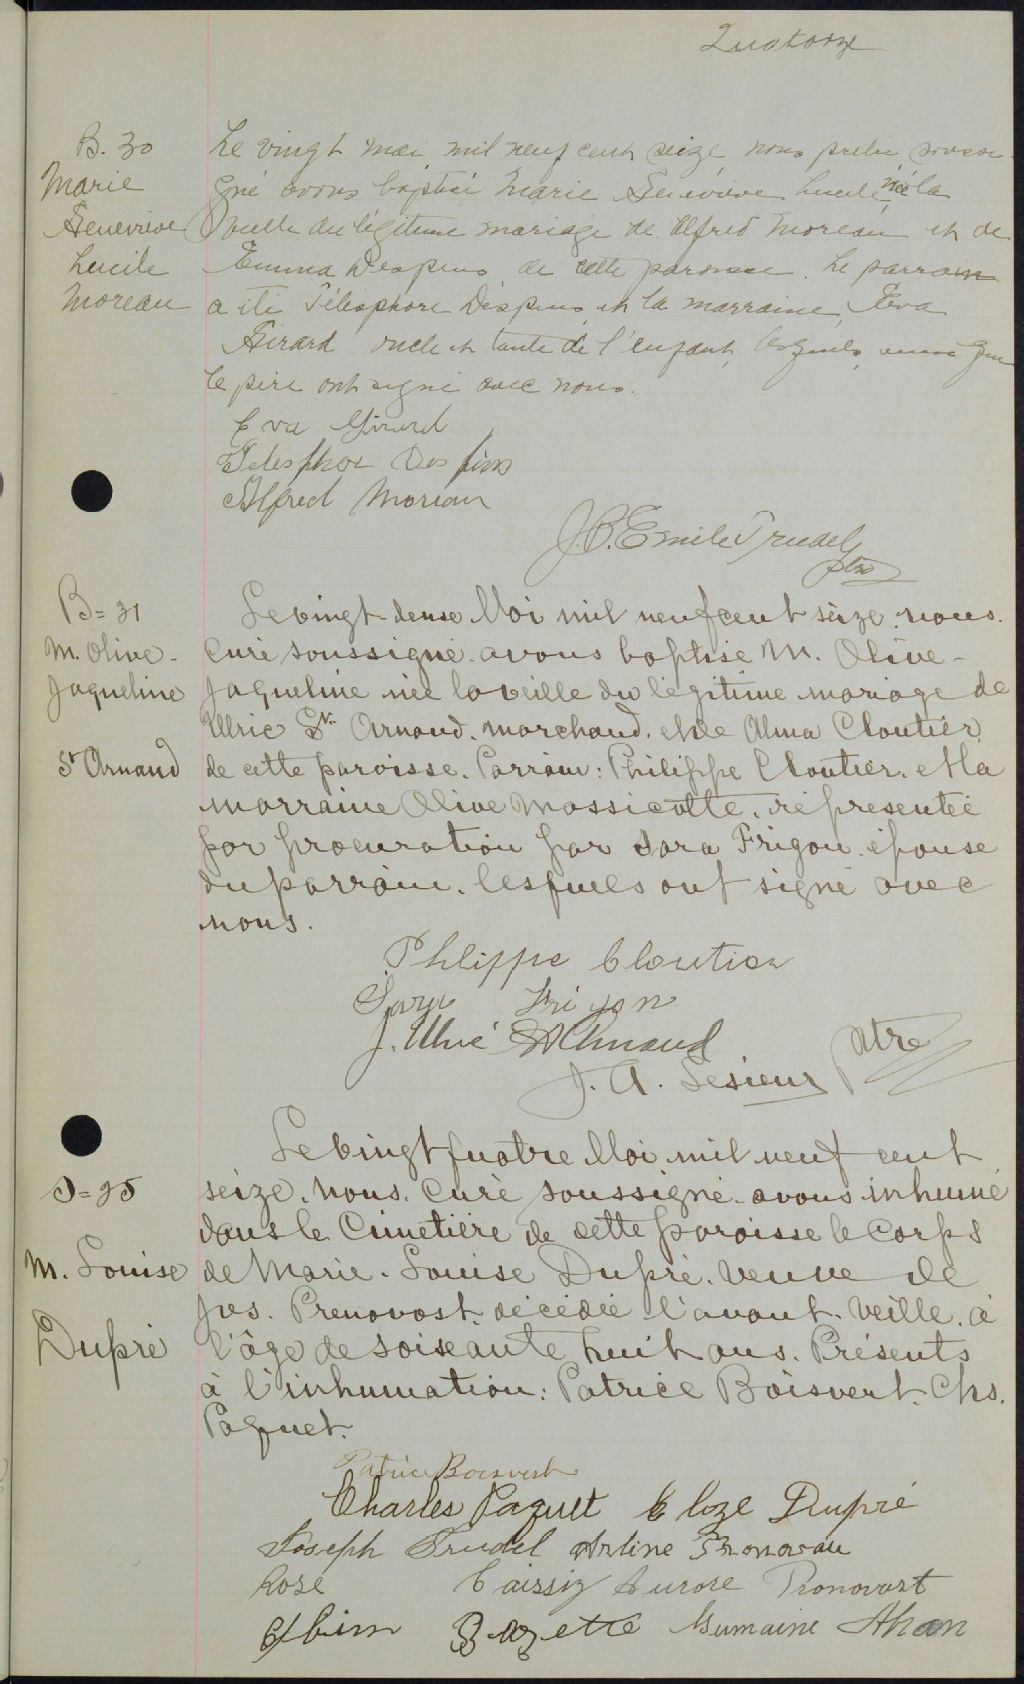 Quatorze
B. 30
Marie
Genevieve
Lucile
Moreau
Le vingt mai mil neuf cent seize nous prêtre soussi-
gné avons baptisé Marie Genevieve Lucile née la
veille du légitime mariage de Alfred Moreau et de
Emma Despins de cette paroisse. Le parrain
a été Télesphore Despins et la marraine, Eva
Girard oncle et tante de l'enfant, lesquels, ainsi que
le père ont signé avec nous.
Eva Girard
Telesphor Des pins
Alfred Moreau
J. B. Emile Trudel
ptre
B = 31
M. Olive-
Jaqueline
St Arnaud
Le vingt-deuse Mai mil neuf cent seize. nous.
Curé soussigné. avons baptisé M. Olive-
Jaqueline née la veille du légitime mariage de
Ulric St. Arnaud. marchand. et de Alma Cloutier
de cette paroisse. Parrain: Philippe Cloutier. et la
marraine Olive Massicotte. représentée
par procuration par Sara Frigon. épouse
du parrain. lesquels ont signé avec
nous.
Phlippe Cloutier
Sara Frigon
J. Ulric St Arnaud
J. A. Lesieur ptre
S = 25
M. Louise
Dupré
Le vingt quatre Mai mil neuf cent
seize. nous. Curé soussigné. avons inhumé
dans le Cimetière de cette paroisse le corps
de Marie. Louise Dupré. veuve de
Jos. Prenovost. décédée l'avant-veille. à
l'âge de soiseante huit ans. Présents
à l'inhumation: Patrice Boisvert. Chs.
Paquet.
Patrice Boisvert
Charles Paquet Eloze Dupré
Joseph Trudel Arline
Rose Caissiz Aurore Pronovost
Albim